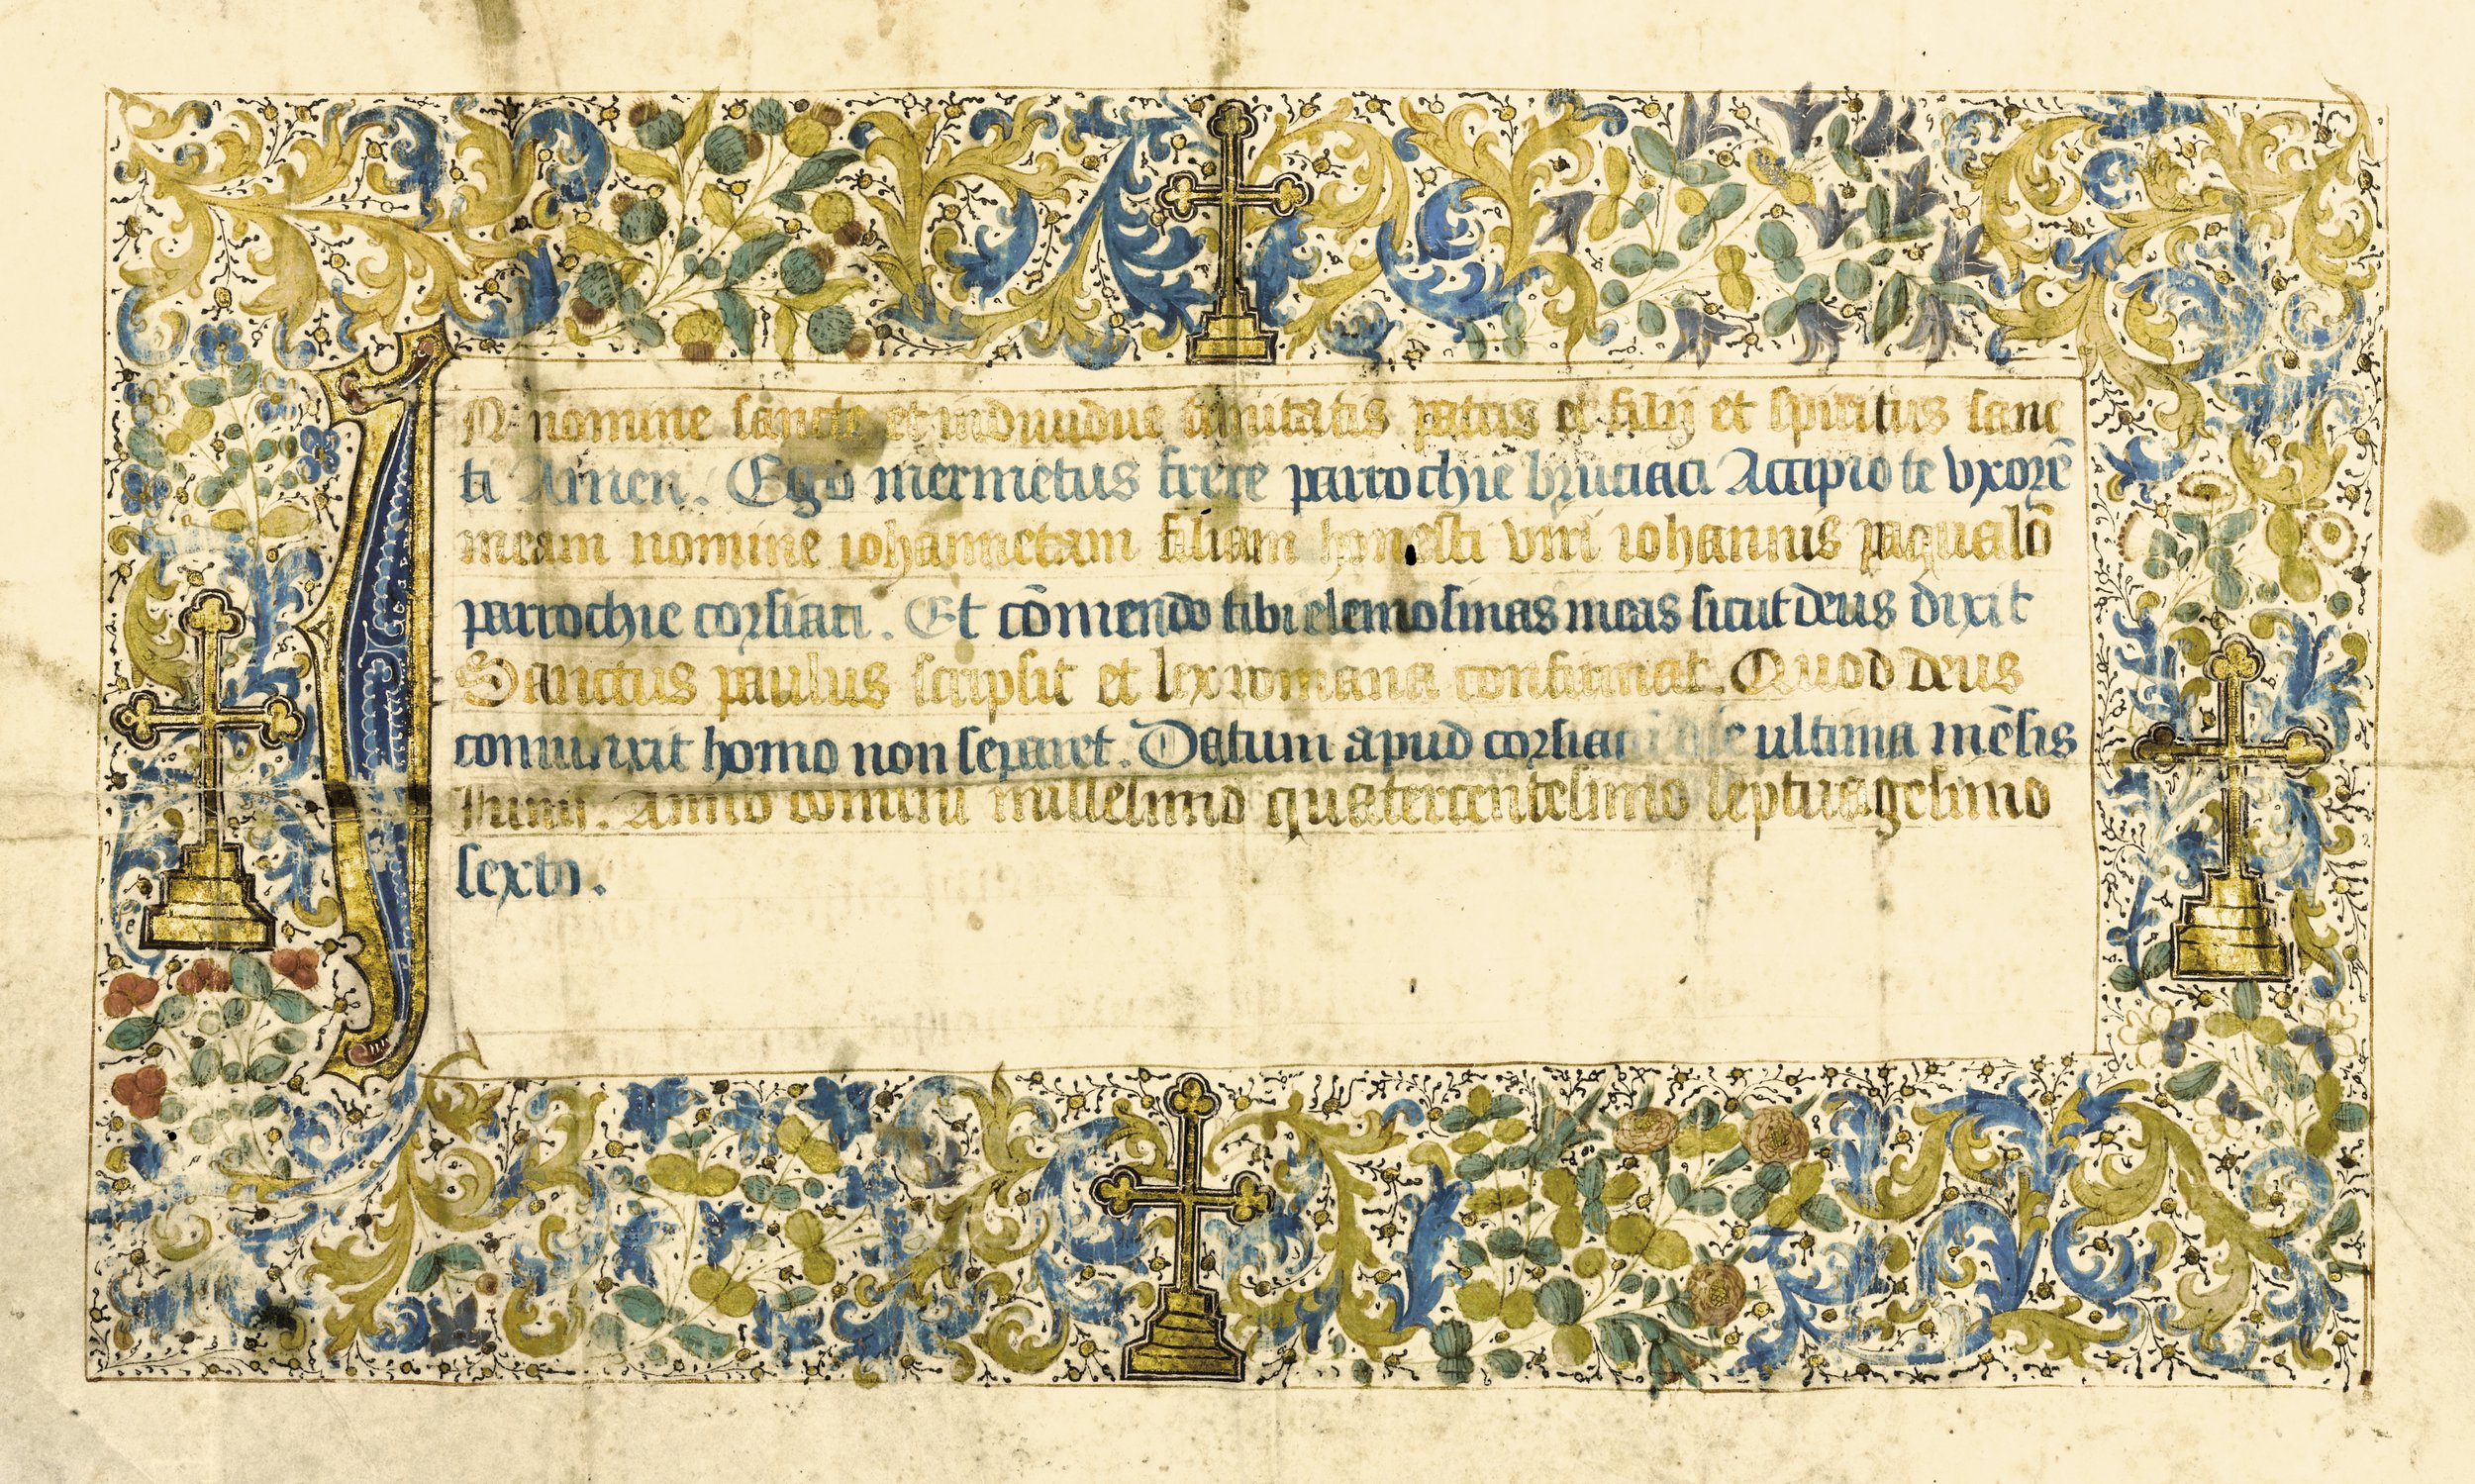 IN nomine sancte et indiuidue trinitatis patris et filij et spiritus sanc
ti Amen. Ego mermetus frere parrochie bruciaci Accipio te vxorē
meam nomine iohannetam filiam honesti viri iohannis paqualō
parrochie corsiaci. Et cōmendo tibi elemosinas meas sicut deus dixit
Sanctus paulus scripsit et lex romana confirmat. Quod deus
coniunxit homo non separet. Datum apud corsiaci die ultima mēsis
Iunij. Anno domini millesimo quatercentesimo septuagesimo
sexto.